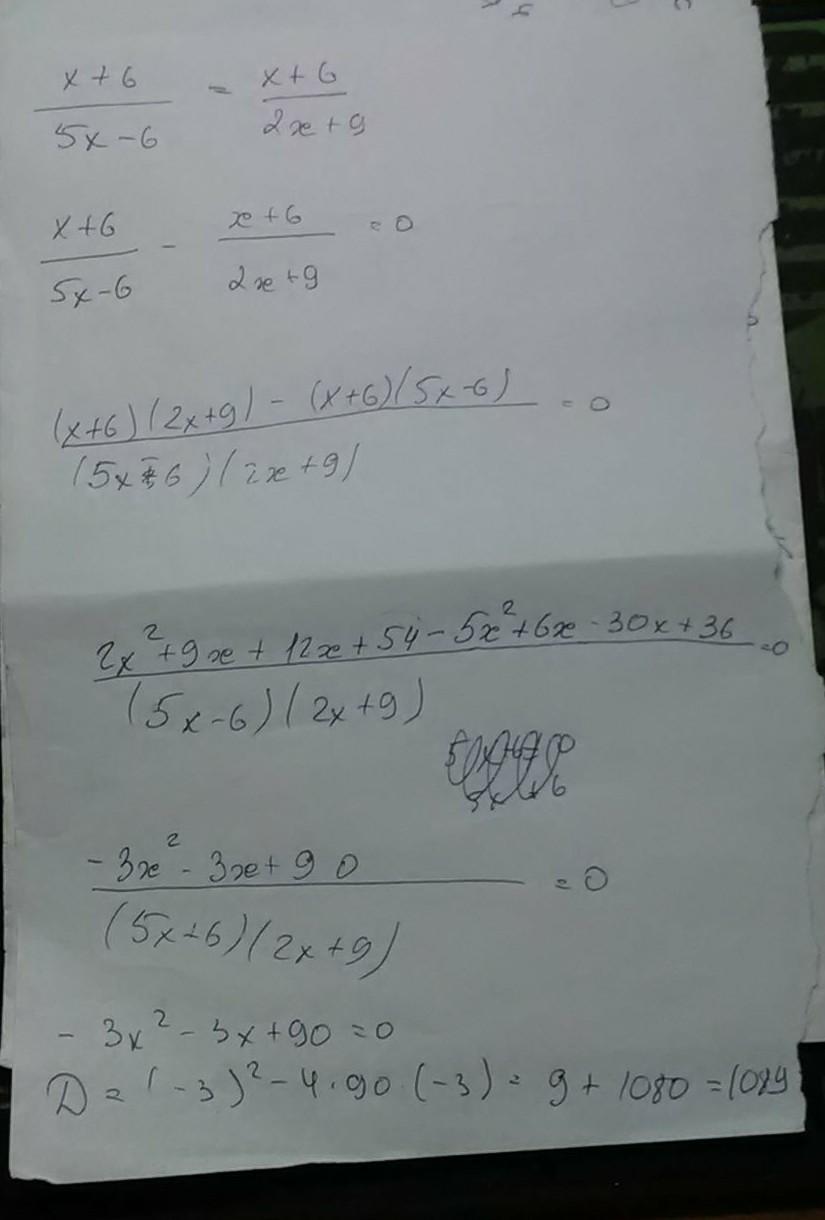 x+6/5x-6 = x+6/2x+9
x+6/5x-6 - x+6/2x+9 = 0
(x+6)(2x+9) - (x+6)(5x-6)/(5x-6)(2x+9) = 0
2x²+9x+12x+54-5x²+6x-30x+36/(5x-6)(2x+9) = 0
-3x²-3x+90/(5x+6)(2x+9) = 0
- 3x² - 3x+90 = 0
D = (-3)² - 4·90·(-3) = 9 + 1080 = 1089